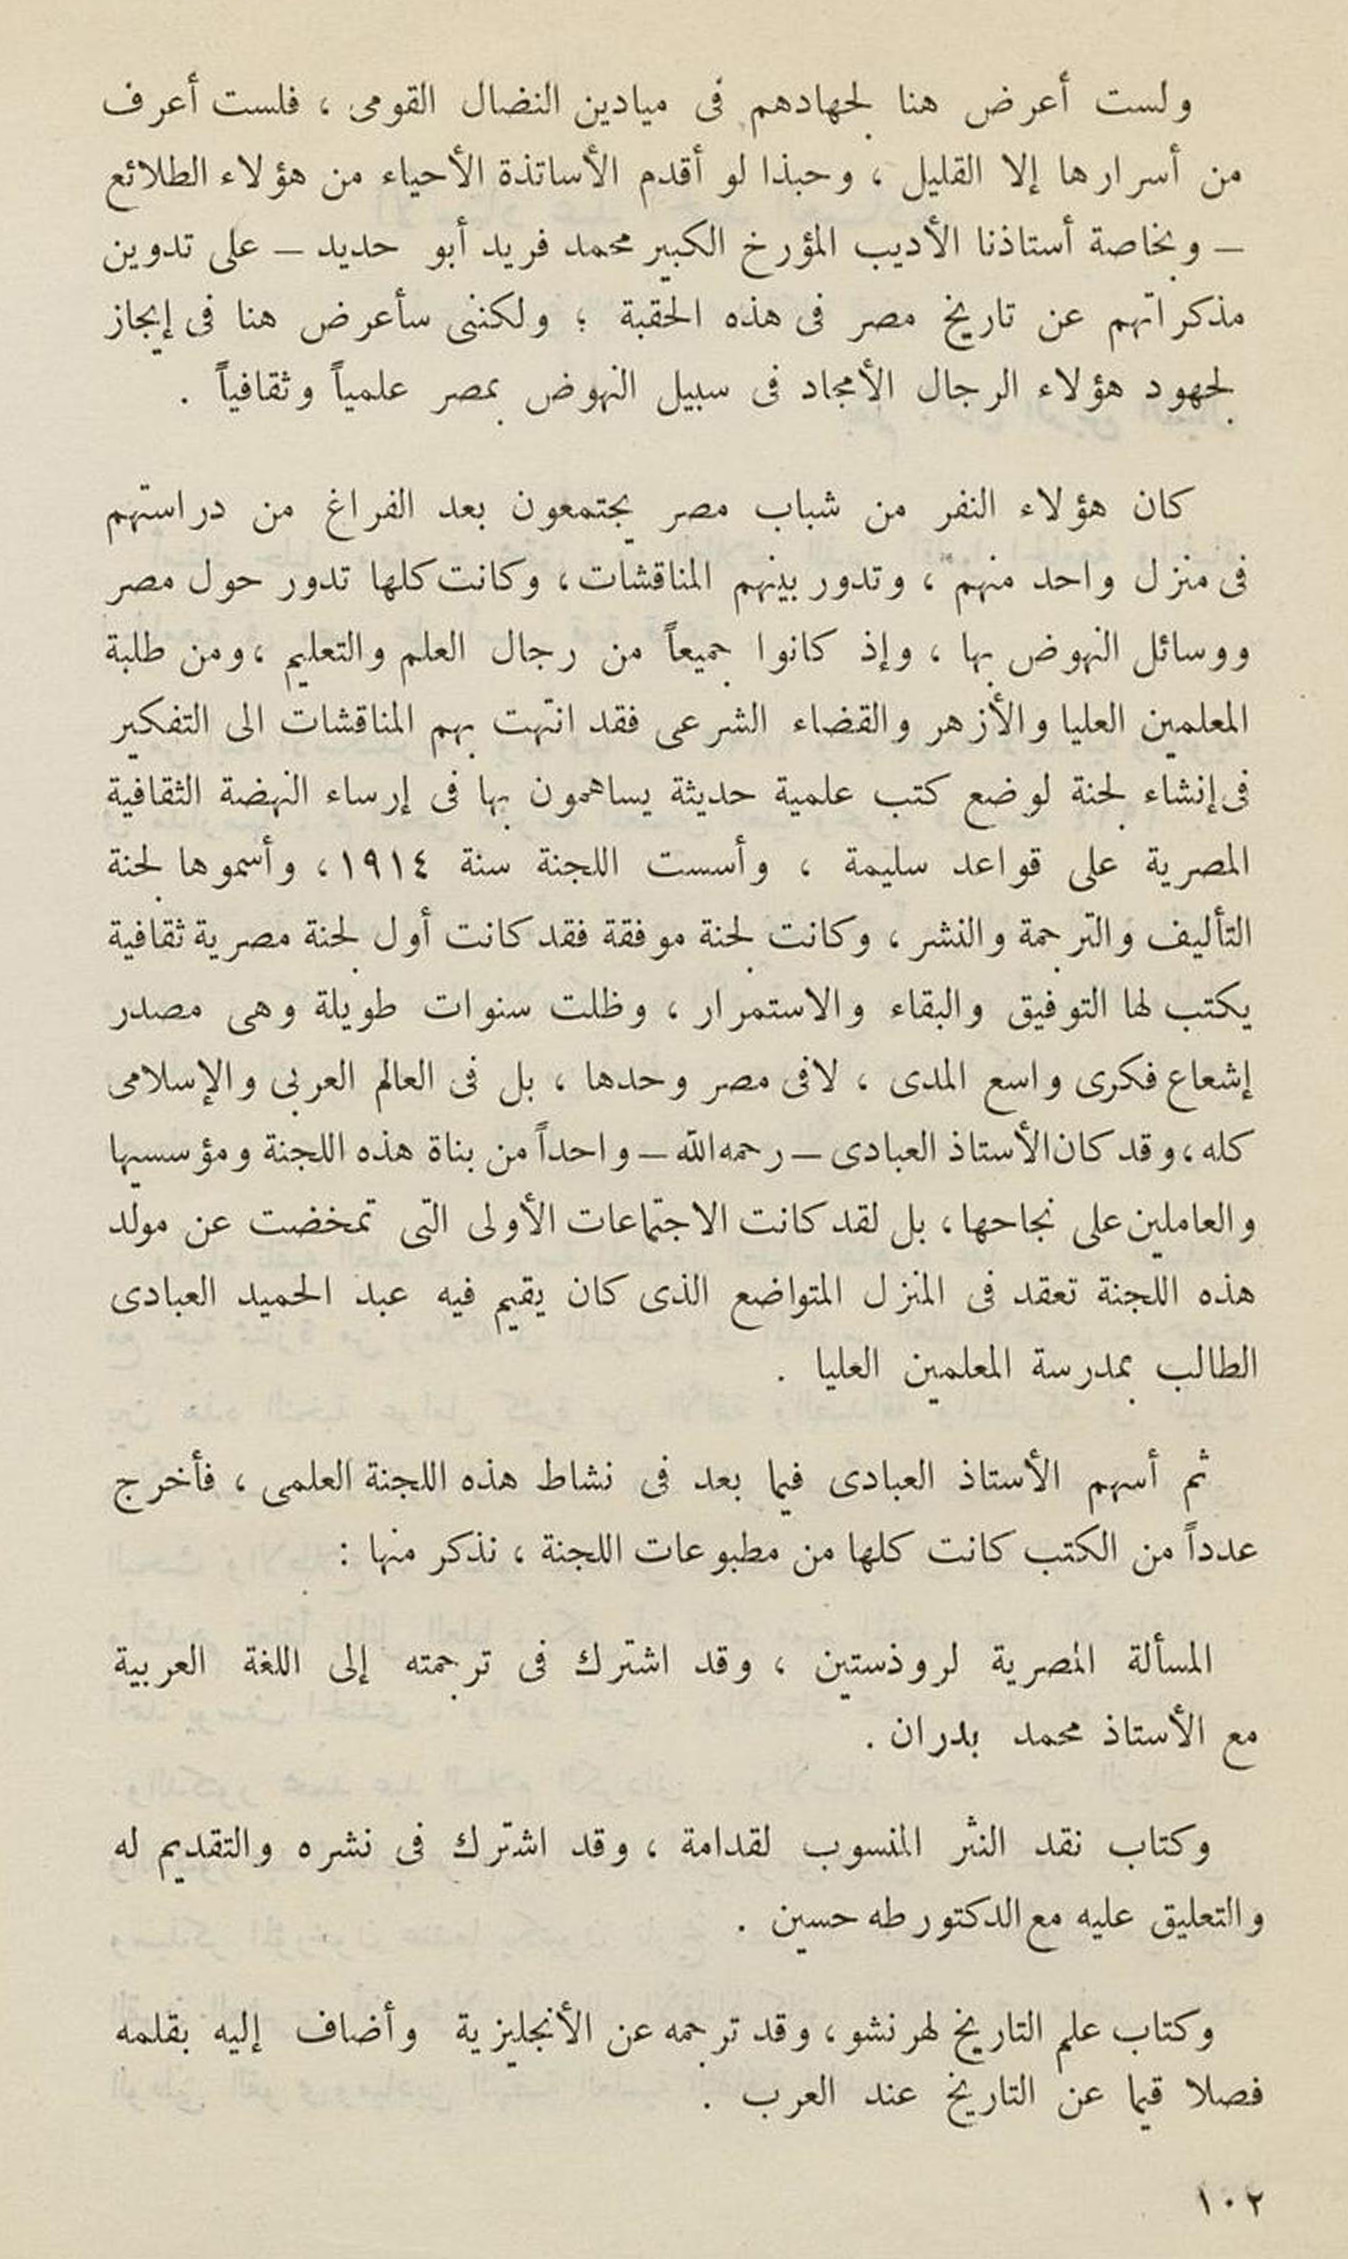 ولست أعرض هنا لجهادهم فى ميادين النضال القومى ، فلست أعرف
من أسرارها إلا القليل ، وحبذا لو أقدم الأساتذة الأحياء من هؤلاء الطلائع
– وبخاصة أستاذنا الأديب المؤرخ الكبير محمد فريد أبو حديد – على تدوين
مذكراتهم عن تاريخ مصر فى هذه الحقبة ؛ ولكننى سأعرض هنا فى إيجاز
لجهود هؤلاء الرجال الأمجاد فى سبيل النهوض بمصر علمياً وثقافياً .
كان هؤلاء النفر من شباب مصر يجتمعون بعد الفراغ من دراستهم
فى منزل واحد منهم ، وتدور بينهم المناقشات ، وكانت كلها تدور حول مصر
ووسائل النهوض بها ، وإذ كانوا جميعاً من رجال العلم والتعليم ، ومن طلبة
المعلمين العليا والأزهر والقضاء الشرعى فقد انتهت بهم المناقشات الى التفكير
فى إنشاء لجنة لوضع كتب علمية حديثة يساهمون بها فى إرساء النهضة الثقافية
المصرية على قواعد سليمة ، وأسست اللجنة سنة ١٩١٤ ، وأسموها لجنة
التأليف والترجمة والنشر ، وكانت لجنة موفقة فقد كانت أول لجنة مصرية ثقافية
يكتب لها التوفيق والبقاء والاستمرار ، وظلت سنوات طويلة وهى مصدر
إشعاع فكرى واسع المدى ، لا فى مصر وحدها ، بل فى العالم العربى والإسلامى
كله ، وقد كان الأستاذ العبادى – رحمه الله – واحداً من بناة هذه اللجنة ومؤسسيها
والعاملين على نجاحها ، بل لقد كانت الاجتماعات الأولى التى تمخضت عن مولد
هذه اللجنة تعقد فى المنزل المتواضع الذى كان يقيم فيه عبد الحميد العبادى
الطالب بمدرسة المعلمين العليا .
ثم أسهم الأستاذ العبادى فيما بعد فى نشاط هذه اللجنة العلمى ، فأخرج
عدداً من الكتب كانت كلها من مطبوعات اللجنة ، نذكر منها :
المسألة المصرية لروذستين ، وقد اشترك فى ترجمته إلى اللغة العربية
مع الأستاذ محمد بدران .
وكتاب نقد النثر المنسوب لقدامة ، وقد اشترك فى نشره والتقديم له
والتعليق عليه مع الدكتور طه حسين .
وكتاب علم التاريخ لهرنشو ، وقد ترجمه عن الأنجليزية وأضاف إليه بقلمه
فصلا قيما عن التاريخ عند العرب .
١٠٢